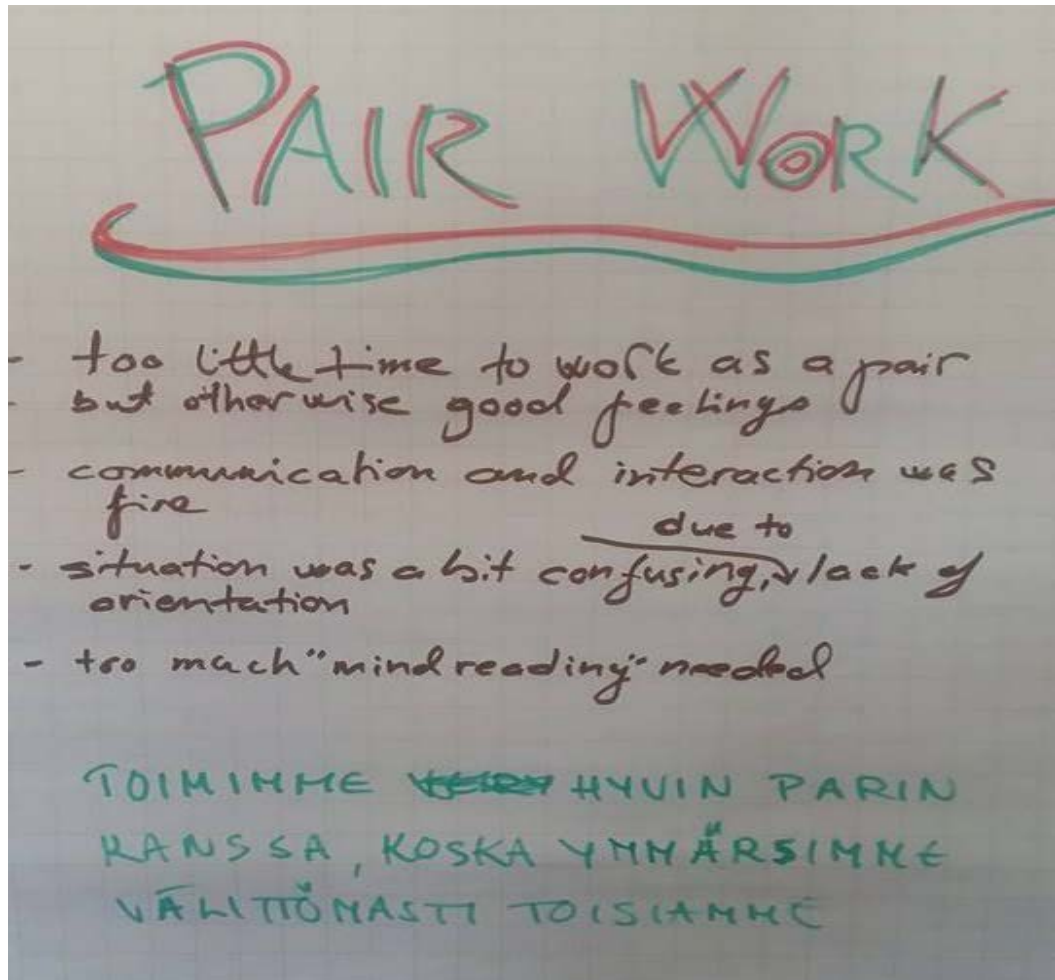 PAIR WORK
- too little time to work as a pair
- but otherwise good feelings
- communication and interaction was
fine
due to
- situation was a bit confusing, lack of
orientation
- too mach "mind reading" needed
TOIMIMME HYVIN PARIN
KANSSA, KOSKA YMMÄRSIMME
VÄLITTÖMÄSTI TOISIAMME